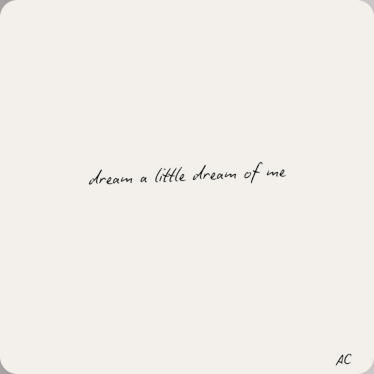 dream a little dream of me
AC